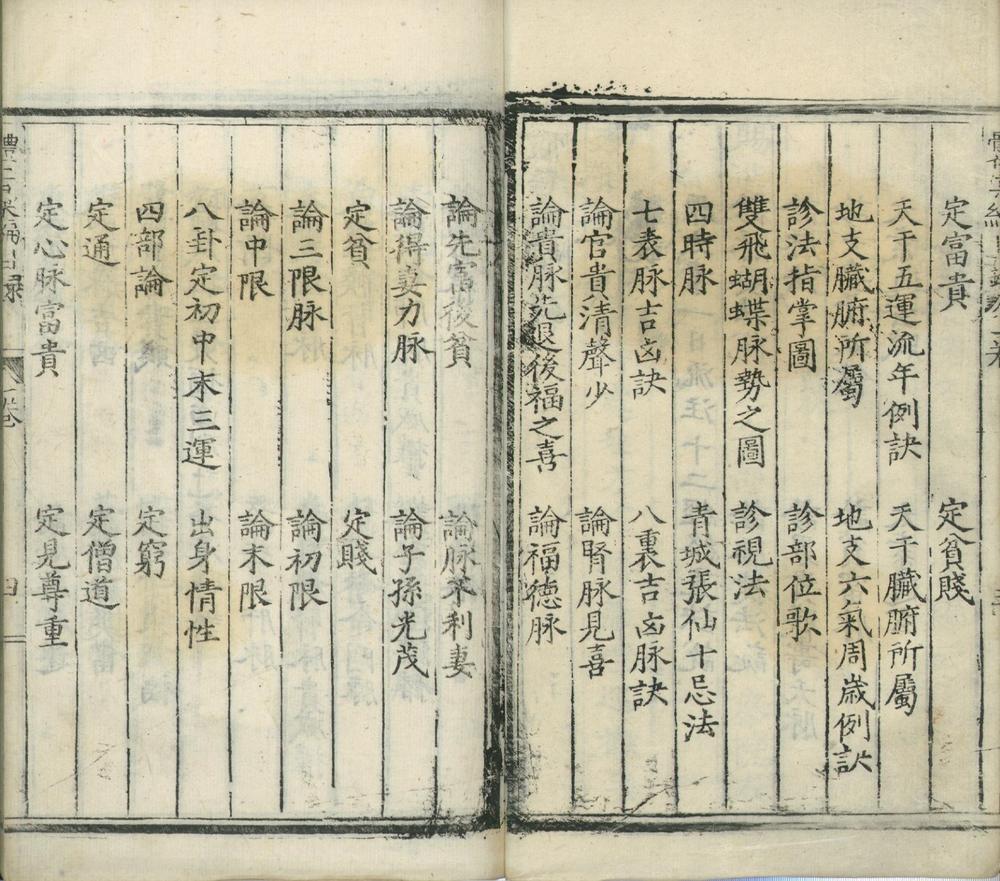 定富貴　定貧賤
天干五運流年例訣　天干臟腑所屬
地支臟腑所屬　地支六氣周歲例訣
診法指掌圖　診部位歌
雙飛蝴蝶脉勢之圖　診視法
四時脉　青城張仙十忌法
七表脉吉凶訣　八裏吉凶脉訣
論官貴清聲少　論腎脉見喜
論貴脉先退後福之喜　論福德脉
論先富後貧　論脉不利妻
論得妻力脉　論子孫光茂
定貧　定賤
論三限脉　論初限
論中限　論末限
八卦定初中末三運　出身情性
四部論　定窮
定通　定僧道
定心脉富貴　定見尊重
卷
四